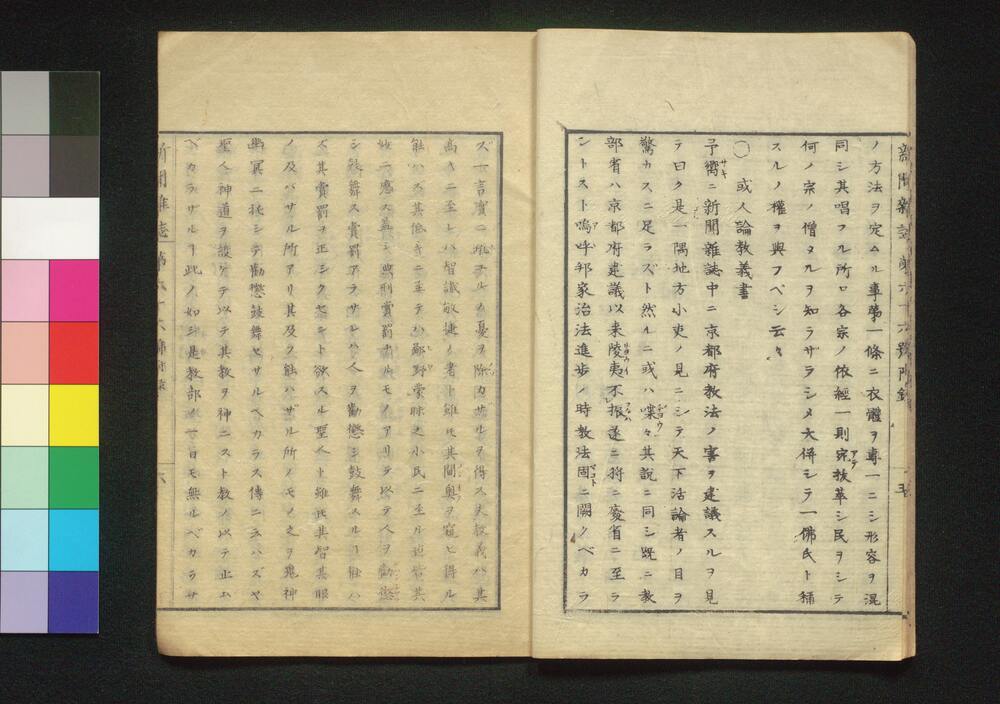 新聞雜誌 第六十六號附録 五
ノ方法ヲ定ムル事第一條ニ衣體ヲ專一ニシ形容ヲ混
同シ其唱フル所ロ各宗ノ依經一則宗抜萃シ民ヲシテ
何ノ宗ノ僧タルヲ知ラザラシメ大併シテ一佛氏ト稱
スルノ權ヲ與フベシ云々
○ 或人論教義書
予嚮ニ新聞雜誌中ニ京都府教法ノ害ヲ建議スルヲ見
テ曰ク是一隅地方小吏ノ見ニシテ天下活論者ノ目ヲ
驚カスニ足ラズト然ルニ或ハ喋々其説ニ同シ既ニ教
部省ハ京都府建議以来陵夷不振遂ニ將ニ廢省ニ至ラ
ントスト嗚呼邦家治法進歩ノ時教法固ニ闕クベカラ
ズ一言實ニ ルノ憂ヲ除カザルヲ得ス夫教義ハ其
高キニ至レバ智識敏捷ノ者ト雖氏其閫奥ヲ窺ヒ得ル
能ハス其低キニ至テハ鄙野蒙昧之小民ニ至ル迄皆其
ニ應ス蓋シ典刑賞罰ナルモノアリテ以テ人ヲ勸懲
シ鼓舞ス賞罰アラサレハ人ヲ勸懲シ鼓舞スルヿ能ハ
ズ其賞罰ヲ正シクセント欲スル聖人ト雖氏其智其眼
ノ及バサル所アリ其及ブ能ハザル所ノモノ之ヲ鬼神
幽冥ニ托シテ勸懲鼓舞セサルベカラス傳ニ云ハズヤ
聖人神道ヲ設ケテ以テ其教ヲ神ニスト教ノ以テ止ム
ベカラザルヿ此ノ如シ是教部ノ一日モ無ルベカラサ
新聞雜誌 第六十六號附録 六